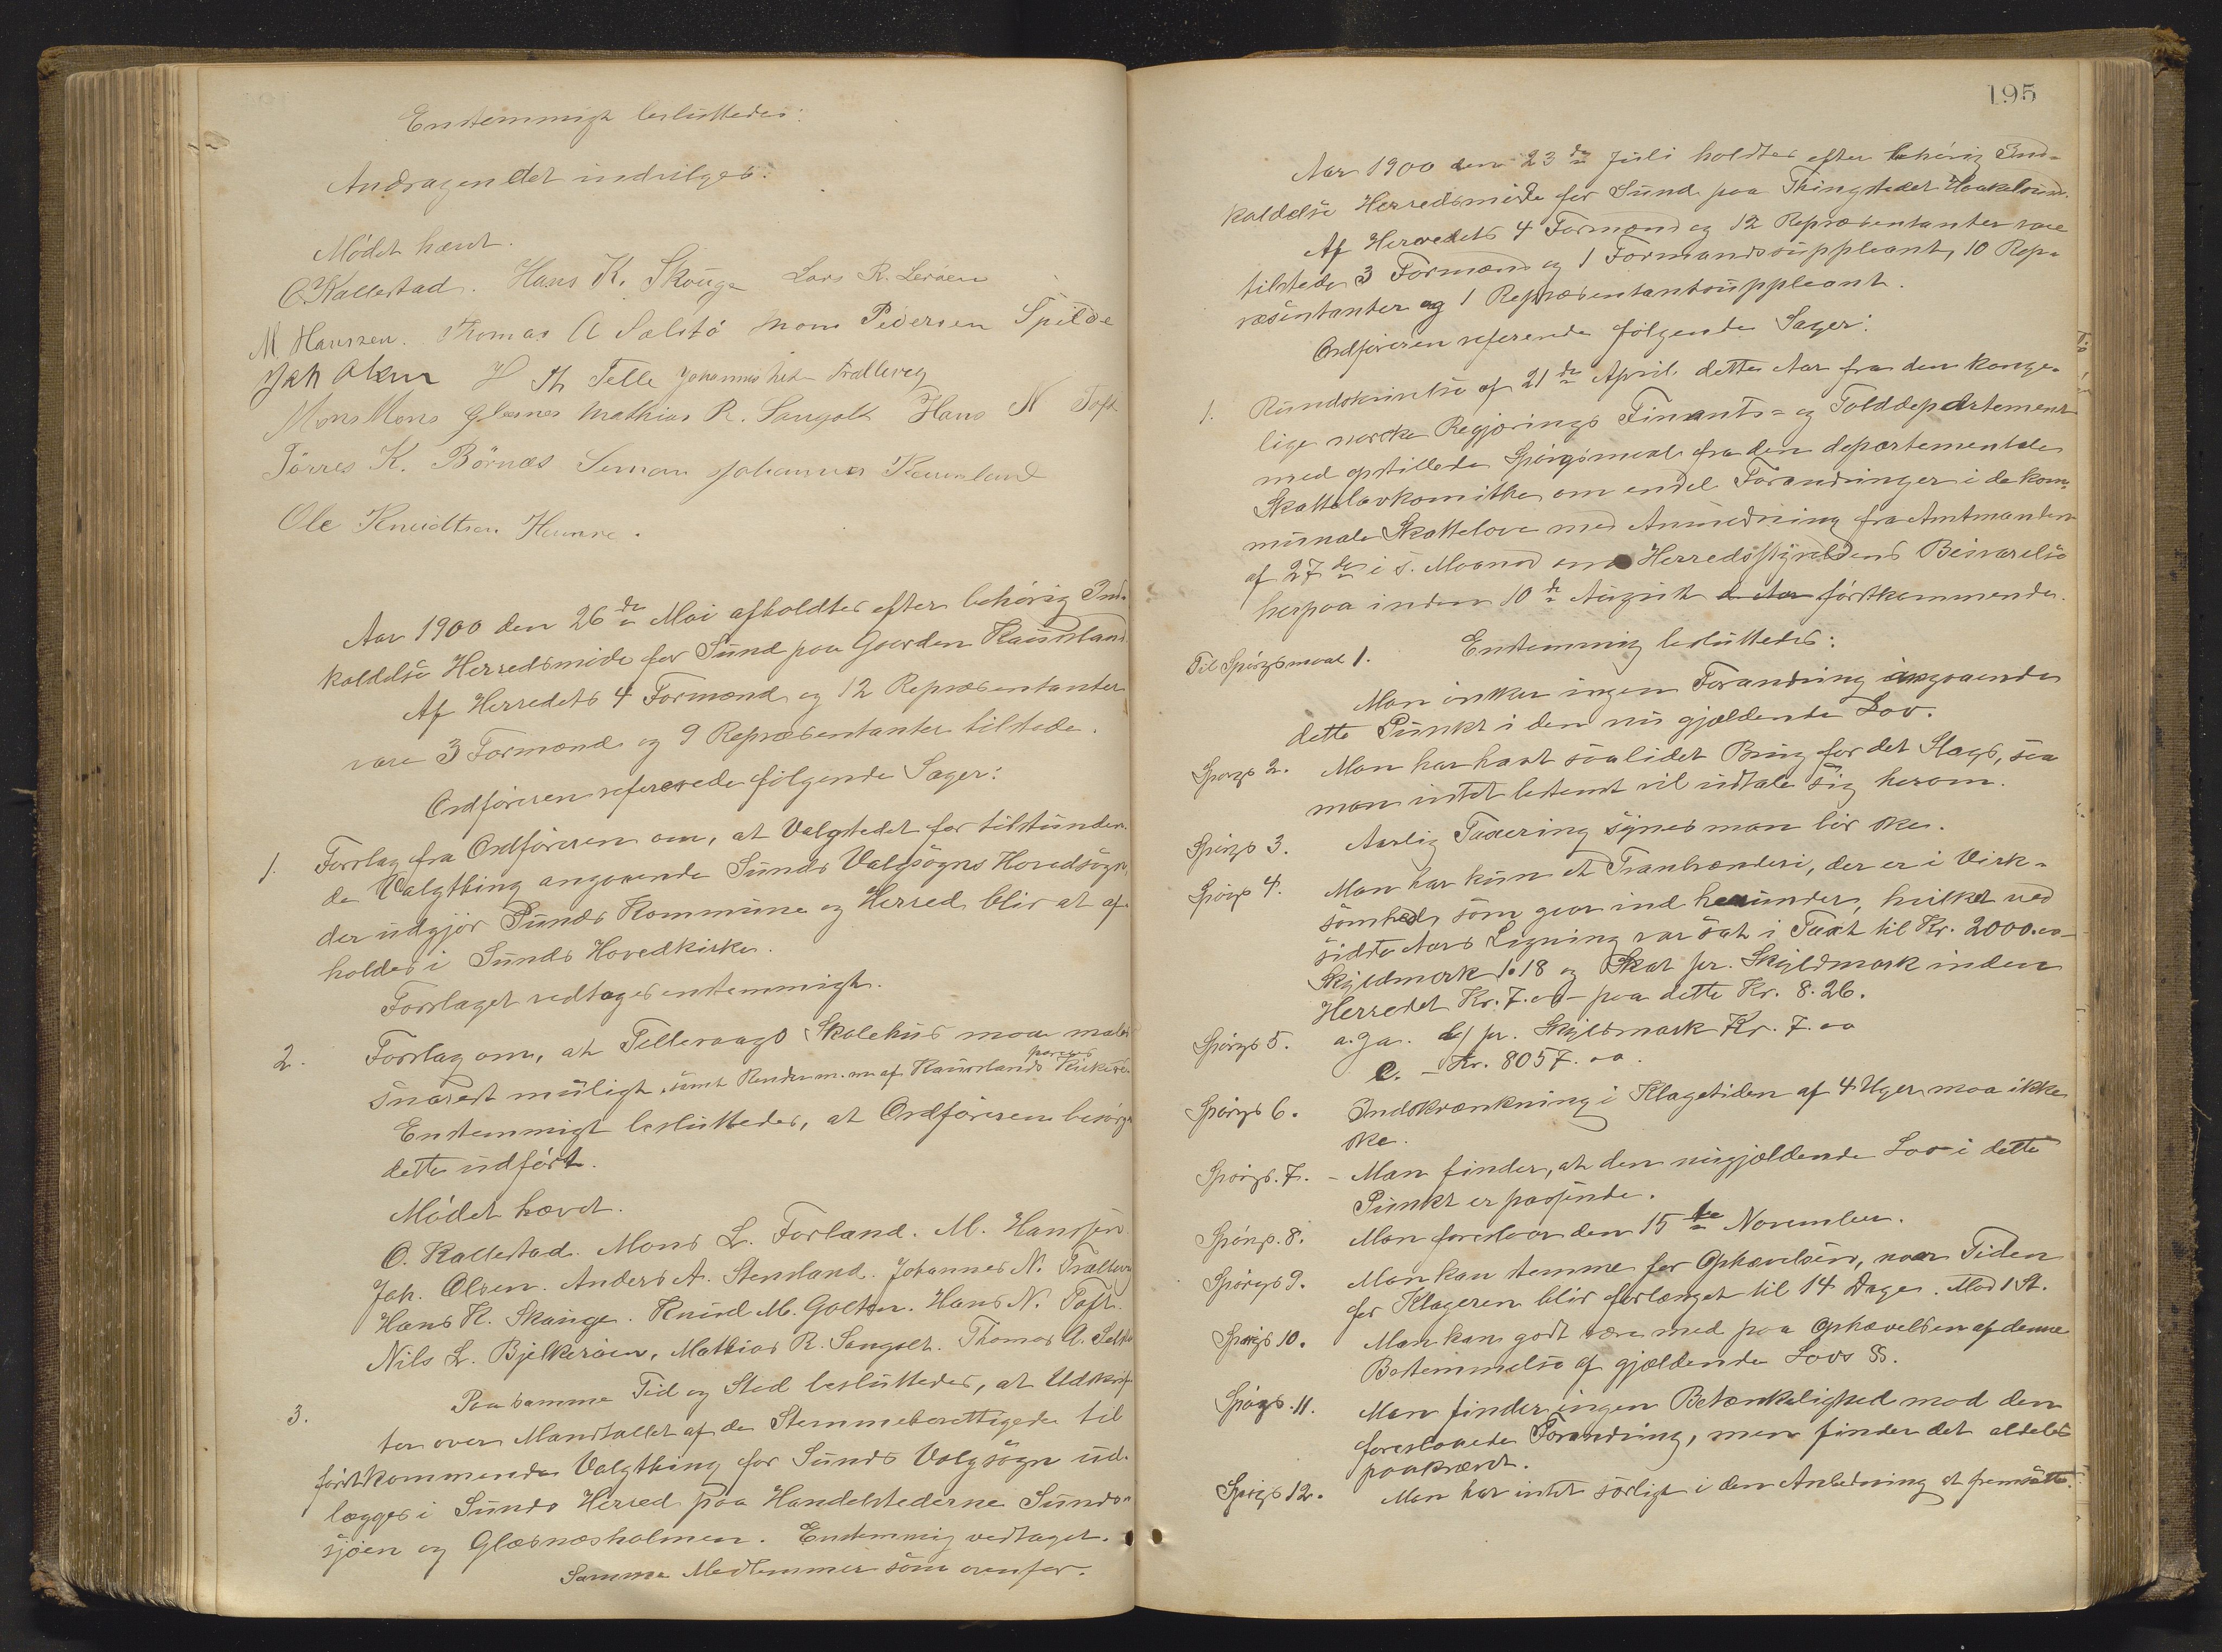 Enstemmigt besluttedes:
Andragendet indvilges.
Mødet hævet.
O. Kallestad. Hans K. Skouge Lars R. Lerøen
M. Hanssen. Thomas A Selstø Mons Pedersen Spilde
Joh Olsen H Th Telle Johannes Nils Trællevig
Mons Mons Glesnes Mathias R. Sangolt Hans N Toft
Tørres K. Börnæs Simon Johannes Kausland
Ole Knudtsen Humme.
Aar 1900 den 26de Mai afholdtes efter behørig Ind-
kaldelse Herredsmøde for Sund paa Gaarden Kausland
Af Herredets 4 Formænd og 12 Repræsentanter
vare 3 Formænd og 9 Repræsentanter tilstede.
Ordføreren refererede følgende Sager:
1. Forslag fra Ordføreren om, at Valgstedet for tilstunden-
de Valgthing angaaende Sunds Valgsogns Hovedsogn,
der udgjør Sunds Kommune og Herred blir at af-
holdes i Sunds Hovedkirke.
Forslaget vedtoges enstemmigt.
2. Forslag om, at Tellevaags Skolehus maa males
snarest muligt, samt Render m. m. af Kauslands
Enstemmigt besluttedes, at Ordføreren besørger
dette udført.
Mødet hævet.
O. Kallestad. Mons L. Forland. M. Hanssen
Joh. Olsen. Anders A. Stensland. Johannes N. Trællevig
Hans K. Skauge. Knud M. Golten. Hans N. Toft.
Nils L. Bjelkerøen, Mathias R. Sangolt. Thomas A. Selstø
3. Paa samme Tid og Sted besluttedes, at Udskrif-
ter over Mandtallet af de Stemmeberettigede til
førstkommende Valgthing for Sunds Valgsogn ud-
lægges i Sunds Herred paa Handelstederne Sunds-
sjøen og Glæsnæsholmen. Enstemmig vedtaget.
Samme Medlemmer som ovenfor.
195
Aar 1900 den 23de Juli holdtes efter behørig Ind-
kaldelse Herredsmøde for Sund paa Thingstedet Haakelsund.
Af Herredets 4 Formænd og 12 Repræsentanter vare
tilstede 3 Formænd og 1 Formandssuppleant, 10 Rep-
ræsentanter og 1 Repræsentantsuppleant.
Ordføreren referende følgende Sager:
1. Rundskrivelse af 21de April dette Aar fra den konge-
lige norske Regjerings Finants- og Tolddepartement
med opstillede Spørgsmaal fra den departementale
Skattelovkomitke om endel Forandringer i de kom-
munale Skattelove med Anmodning fra Amtmanden
af 27de i s. Maaned om Herredsstyrelsens Besvarelse
herpaa inden 10de August d. Aar førstkommende.
Til Spørgsmaal 1. Enstemmig besluttedes:
Man ønsker ingen Forandring angaaende
dette Punkt i den nu gjældende Lov.
Spørgs 2. Man har havt saalidet Brug for det Slags, saa
man intet bestemt vil udtale sig herom.
Spørgs 3. Aarlig Taxering synes man bør ske.
Spørgs 4. Man har kun et Tranbrænderi, der er i Virk-
somhed, som gaar ind herunder, hvilket ved
sidste Aars Ligning var sat i Taxt til Kr. 2000.00
Skyldmark 1.18 og Skat pr. Skyldmark inden
Herredet Kr. 7.00 – paa dette Kr. 8.26.
Spørgs 5. a. Ja. b/ pr. Skyldmark Kr. 7.00
c. – Kr. 8057.00.
Spørgs 6. Indskrænkning i Klagetiden af 4 Uger maa ikke
ske.
Spørgs. 7. – Man finder, at den nugjældende Lov i dette
Punkt er passende.
Spørgs. 8. Man foreslaar den 15te November.
Spørgs 9. Man kan stemme for Ophævelsen, naar Tiden
for Klageren blir forlænget til 14 Dage. Mod 1 St.
Spørgs 10. Man kan godt være med paa Ophævelsen af denne
Bestemmelse af gjældende Lovs §§.
Spørgs. 11. Man finder ingen Betænkelighed mod den
foreslaaede Forandring, men finder det aldeles
paakrævet.
Spørgs 12. Man har intet særligt i den Anledning at fremsætte.